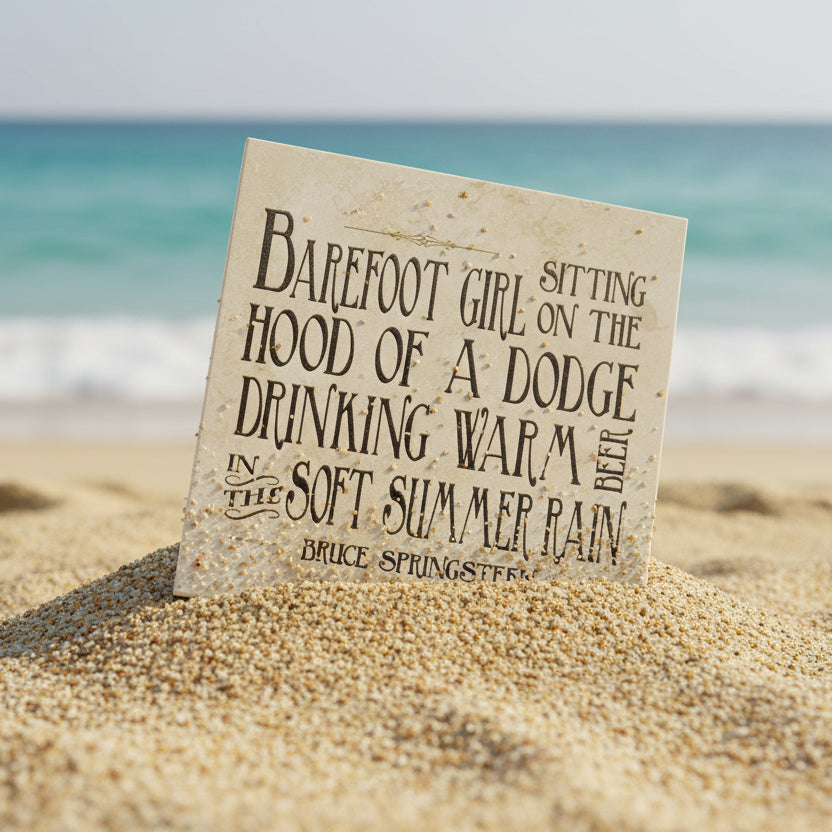 Barefoot girl sitting on the
hood of a Dodge
drinking warm beer
in the soft summer rain
Bruce Springsteen